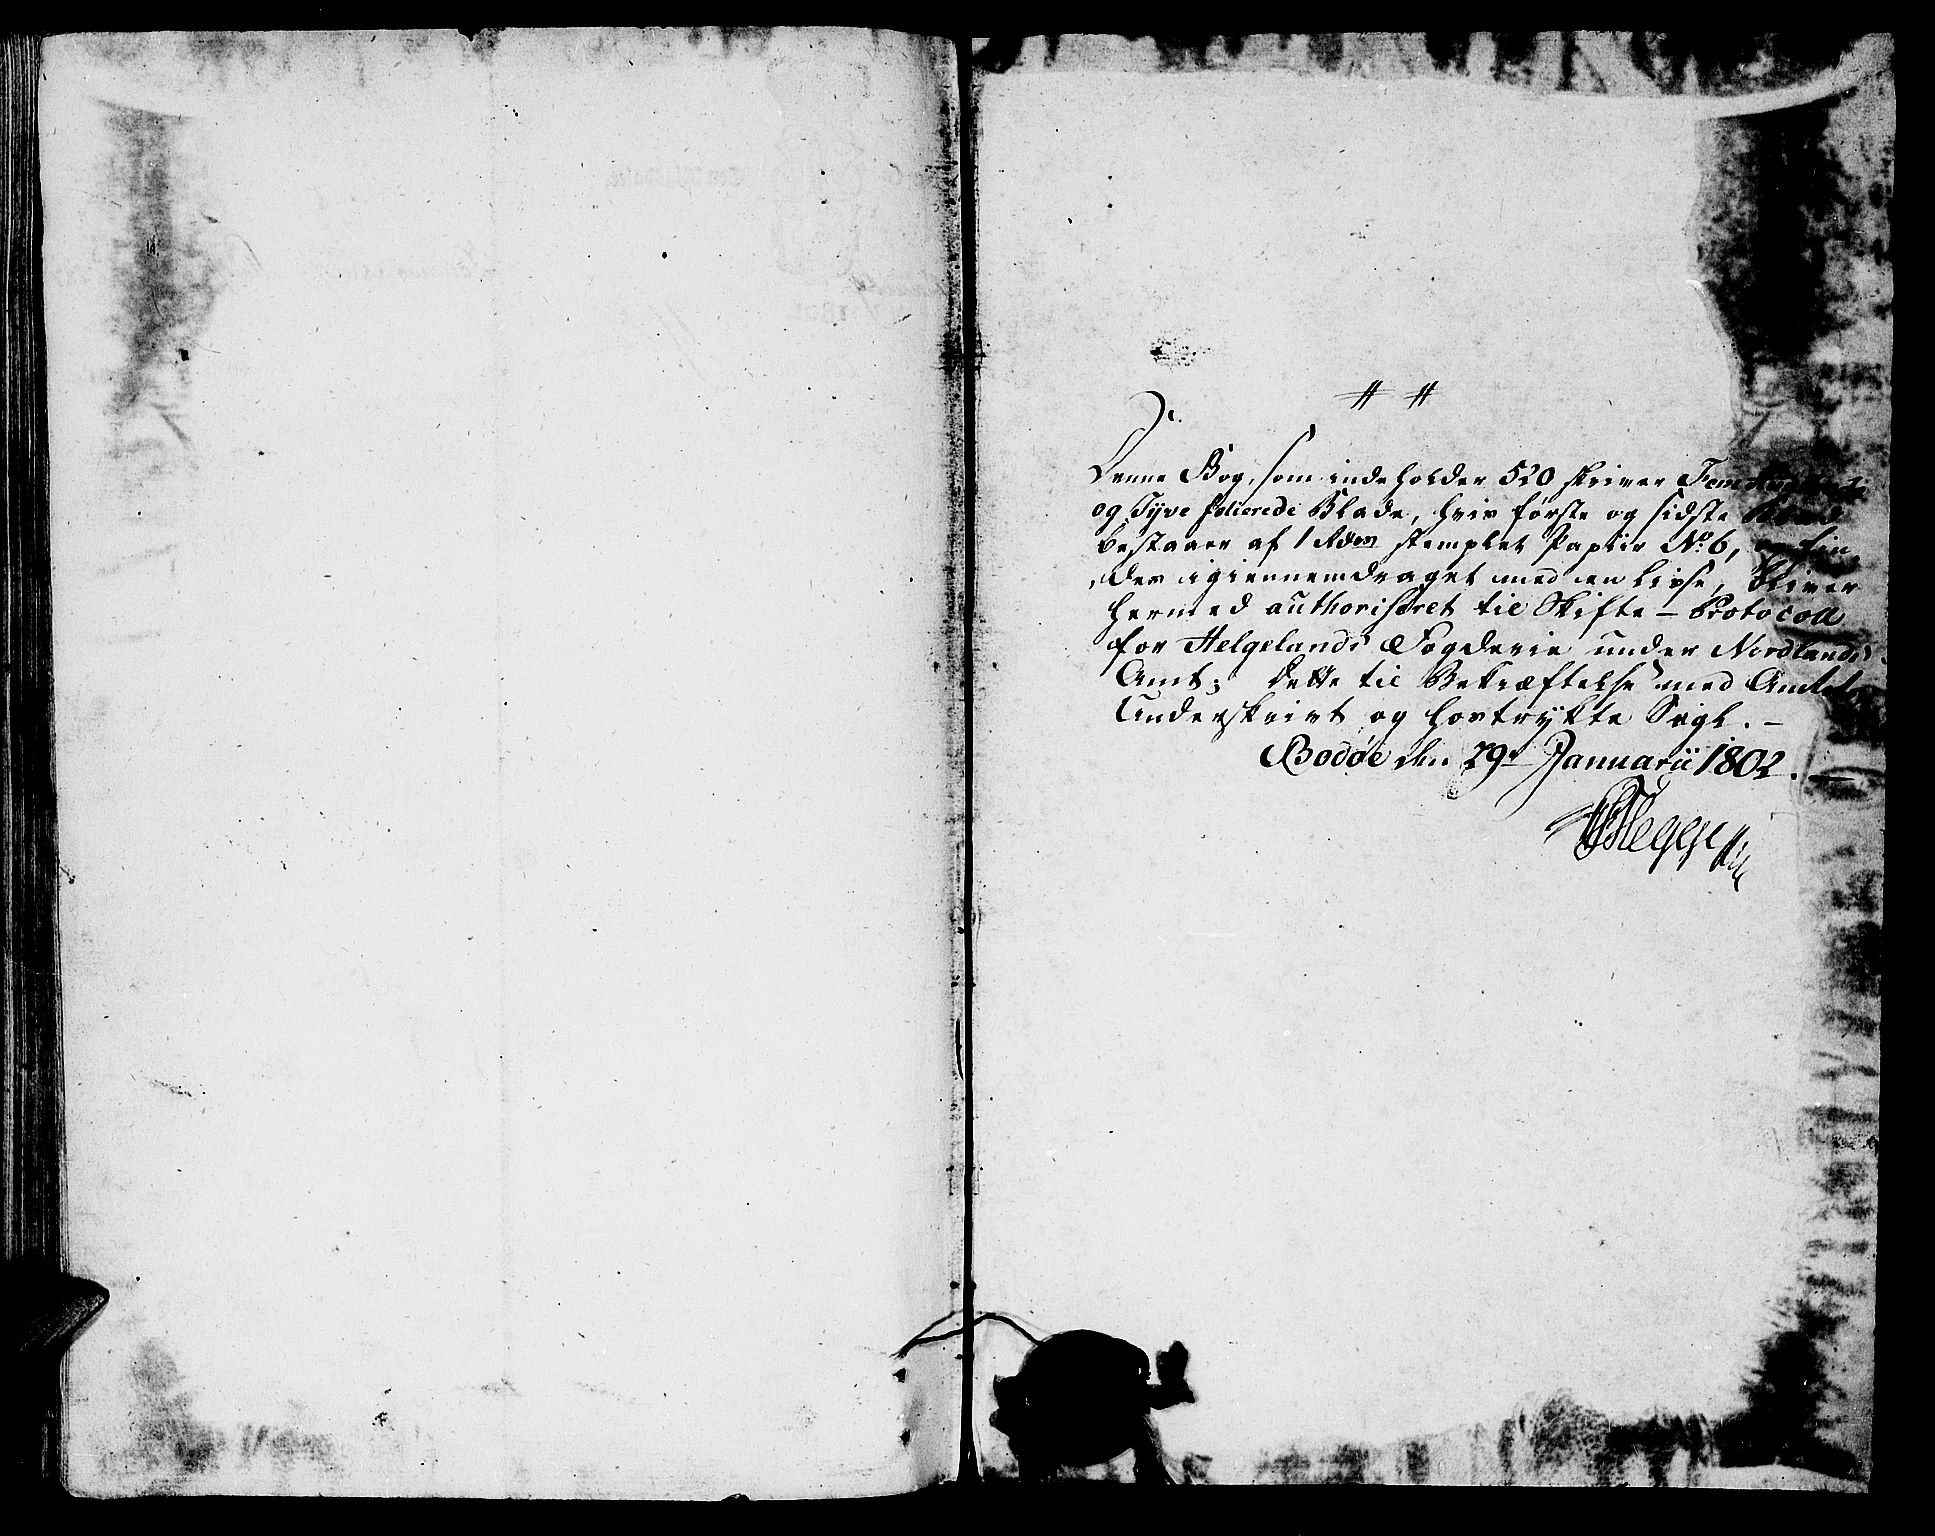 Denne Bog, som indeholder 520 skriver Fem Hundrede
og Tyve folierede Blade, hvis første og sidste Blad
bestaaer af 1 Rdrs stemplet Papiir No. 6, og fin„
„des igiennemdraget med en Lidse, bliver
hermed authoriseret til Skifte-Protocoll
for Helgelands Fogderie under Nordlands
Amt; dette til Bekræftelse med Amtets
Underskrivt og hostrykte Segl. –
Bodøe den 29de Januarii 1802. –